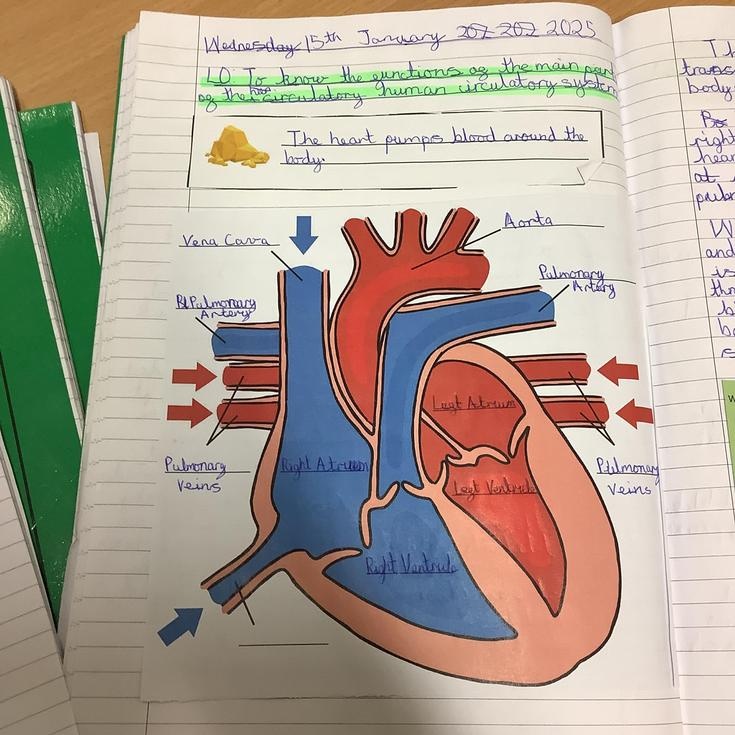 Wednesday 15th January 207 202 2025
LO To know the functions of the main par
of the human circulatory human circulatory system
The heart pumps blood around the
body.
Vena Cava
Aorta
Pulmonary
Artery
Pulmonary
Artery
Left Atrium
Pulmonary
Veins
Right Atrium
Left Ventricle
Pulmonary
Veins
Right Ventricle
trans
body
right
hear
at
pulm
W
and
is
thr